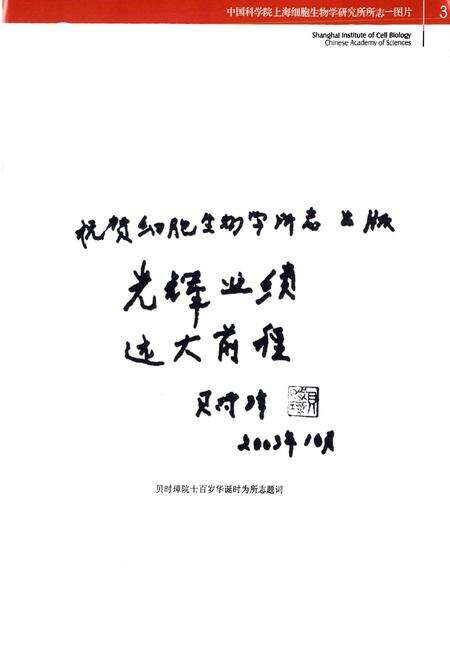 中国科学院上海细胞生物学研究所所志—图片 3
Shanghai Institute of Cell Biology
Chinese Academy of Sciences
祝贺细胞生物学所志出版
光辉业绩
远大前程
贝时璋
2003年10月
贝时璋院士百岁华诞时为所志题词